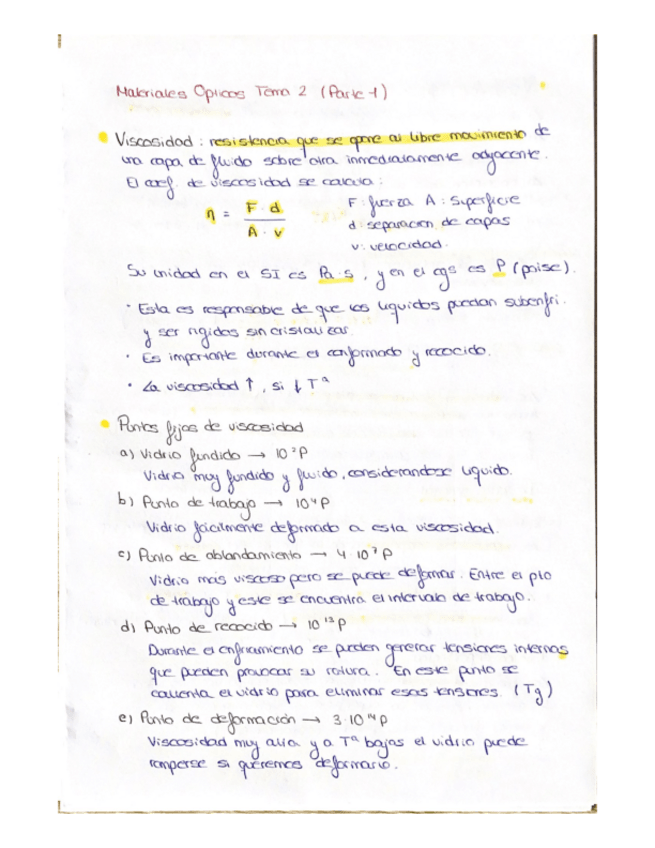 Materiales Opticos Tema 2 (Parte 1)
Viscosidad : resistencia que se opone al libre movimiento de
una capa de fluido sobre otra inmediatamente adyacente.
El coef. de viscosidad se calcula :
η = F · d / A · v
F : fuerza A : Superficie
d : separación de capas
v : velocidad.
Su unidad en el SI es Pa · s , y en el cgs es P (poise).
· Esta es responsable de que los líquidos puedan subenfri.
y ser rígidos sin cristalizar.
· Es importante durante el conformado y recocido.
· La viscosidad ↑ , si ↓ Tª
Puntos fijos de viscosidad
a) Vidrio fundido → 10² P
Vidrio muy fundido y fluido, considerandose líquido.
b) Punto de trabajo → 10⁴ P
Vidrio fácilmente deformado a esta viscosidad.
c) Punto de ablandamiento → 4 · 10⁷ P
Vidrio más viscoso pero se puede deformar. Entre el pto
de trabajo y este se encuentra el intervalo de trabajo.
d) Punto de recocido → 10¹³ P
Durante el enfriamiento se pueden generar tensiones internas
que pueden provocar su rotura. En este punto se
calienta el vidrio para eliminar esas tensiones. (Tg)
e) Punto de deformación → 3 · 10¹⁴ P
Viscosidad muy alta y a Tª bajas el vidrio puede
romperse si queremos deformarlo.